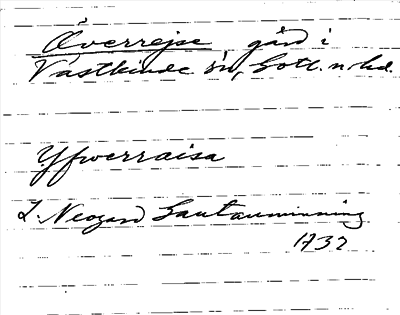 Överrejse gård i
Västkinde sn, Gotl. n. hd.
Yfwerraisa
L. Neogard Gautauminning
1732